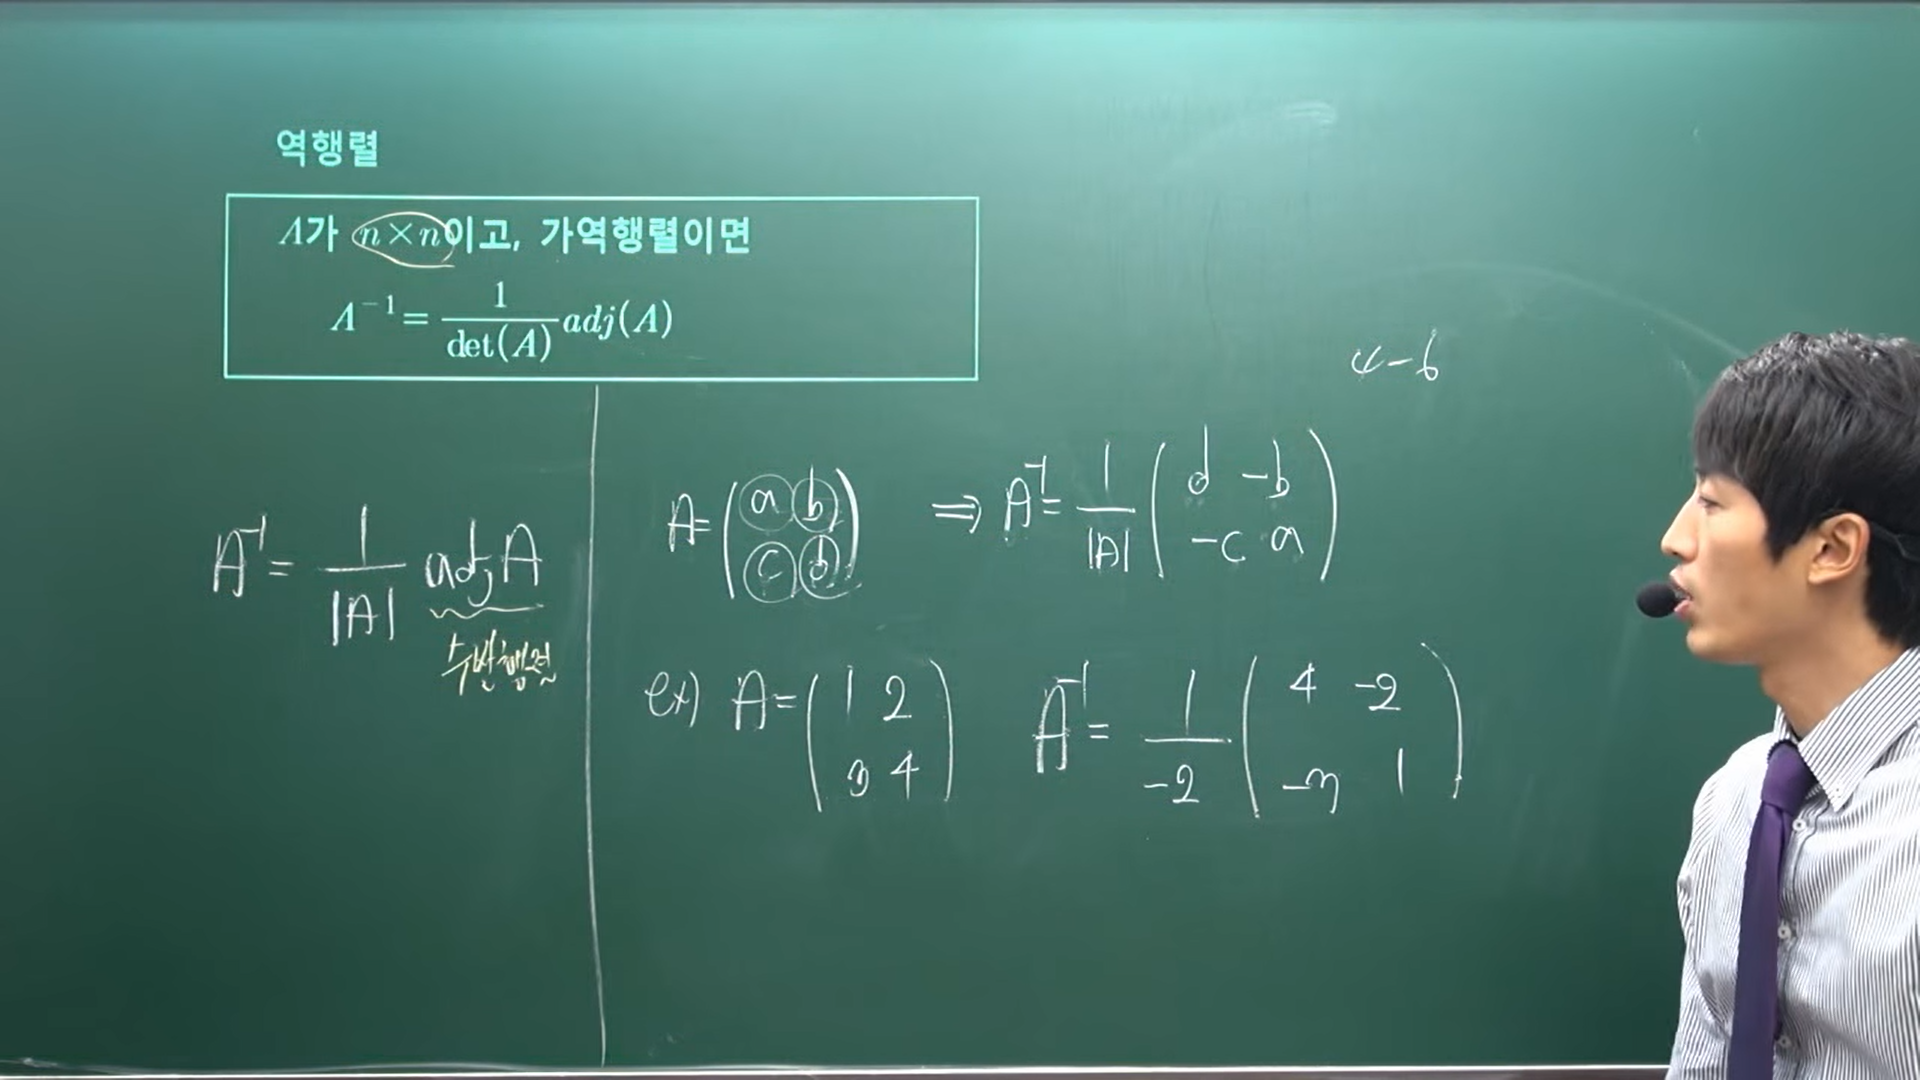 역행렬
A가 n×n이고, 가역행렬이면
A⁻¹ = 1/det(A) adj(A)
4-6
A⁻¹ = 1/|A| adj A
수반행렬
A = (a b / c d) ⇒ A⁻¹ = 1/|A| (d -b / -c a)
ex) A = (1 2 / 3 4) A⁻¹ = 1/-2 (4 -2 / -3 1)